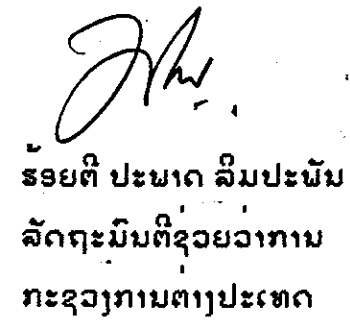 ຮ້ອຍຕີ ປະພາດ ລິມປະພັນ
ລັດຖະມົນຕີຊ່ວຍວ່າການ
ກະຊວງການຕ່າງປະເທດ